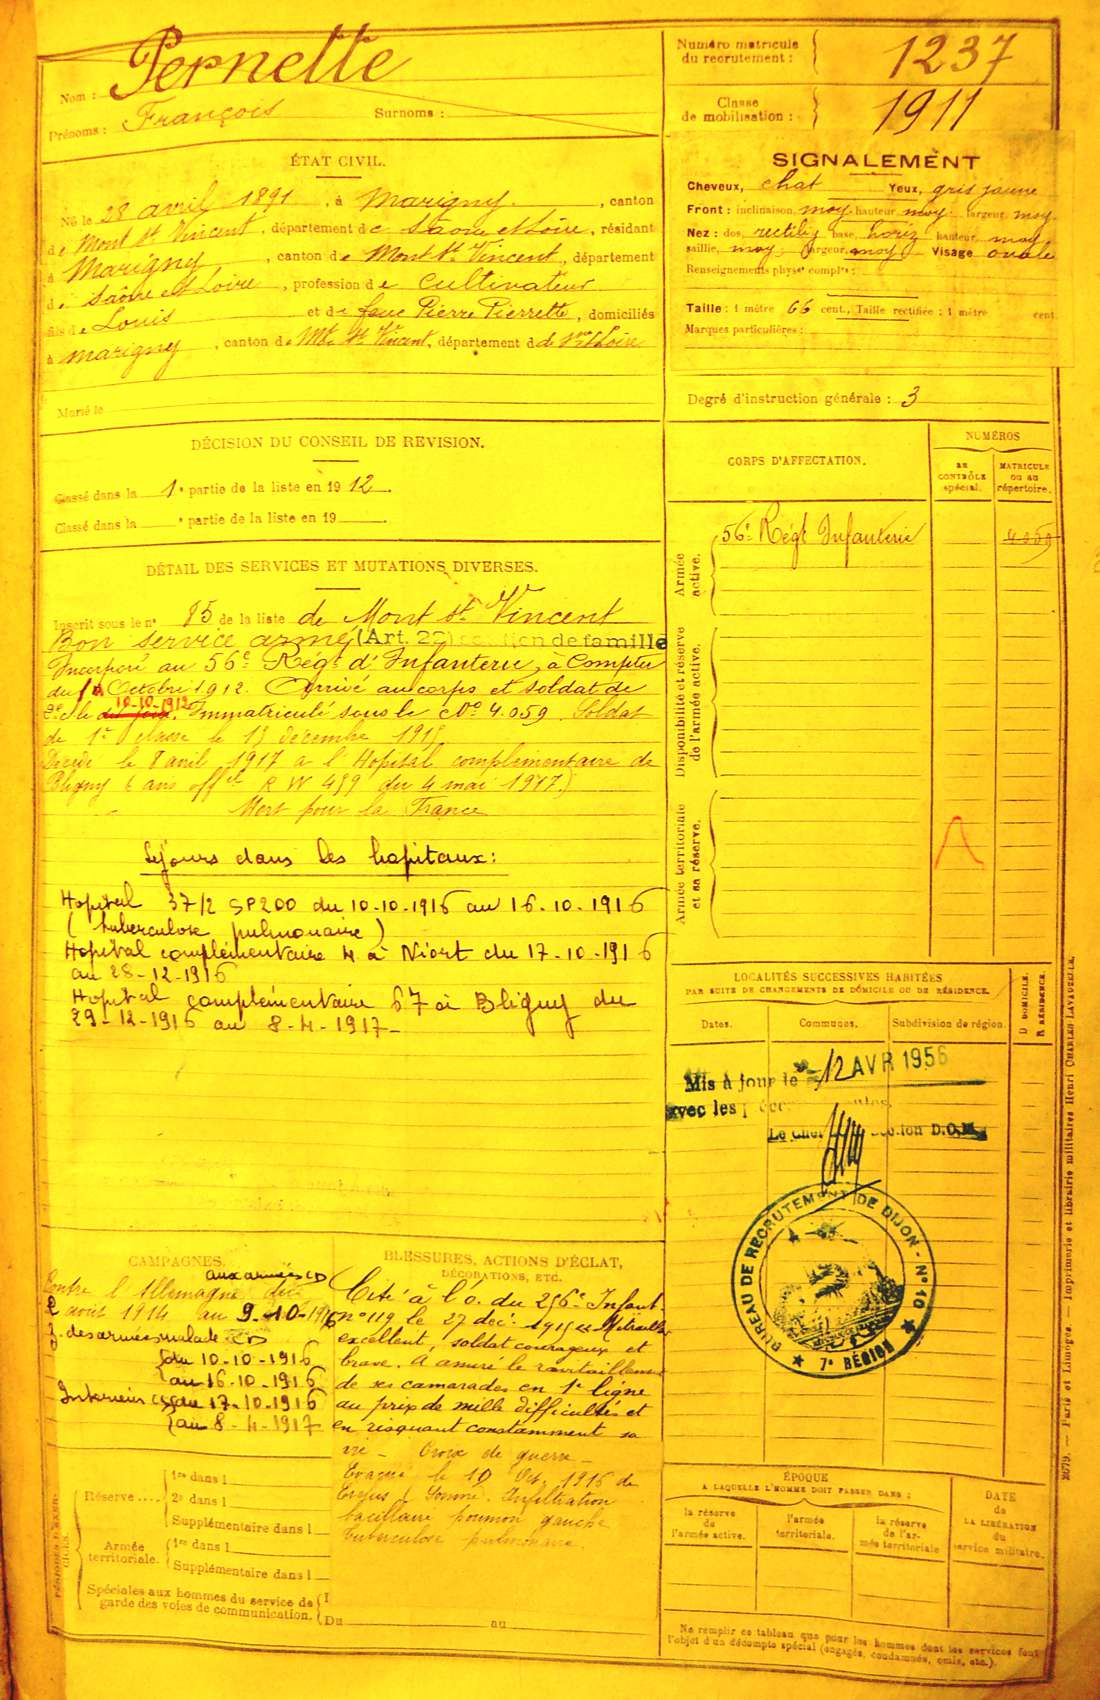 Nom : Pernette
Prénoms : François Surnoms :
Numéro matricule du recrutement : 1237
Classe de mobilisation : 1911
ÉTAT CIVIL.
Né le 28 avril 1891, à Marigny, canton
de Mont St Vincent, département de Saône et Loire, résidant
à Marigny, canton de Mont St Vincent, département
de Saône et Loire, profession de cultivateur
fils de Louis et de feue Pierre Pierrette, domiciliés
à Marigny, canton de Mt St Vincent, département de Sne & Loire
Marié le
SIGNALEMENT
Cheveux, chat Yeux, gris jaune
Front : inclinaison, moy. hauteur moy. largeur, moy.
Nez : dos, rectilig base, horiz hauteur, moy.
saillie, moy, largeur, moy. Visage ovale
Renseignements physes complres :
Taille : 1 mètre 66 cent., Taille rectifiée : 1 mètre cent.
Marques particulières :
Degré d'instruction générale : 3
DÉCISION DU CONSEIL DE REVISION.
Classé dans la 1e partie de la liste en 1912.
Classé dans la e partie de la liste en 19 .
CORPS D'AFFECTATION.
NUMÉROS
AU CONTRÔLE spécial.
MATRICULE ou au répertoire.
Armée active.
56e Régt Infanterie 4059
Disponibilité et réserve de l'armée active.
Armée territoriale et sa réserve.
DÉTAIL DES SERVICES ET MUTATIONS DIVERSES.
Inscrit sous le no 85 de la liste de Mont St Vincent
Bon service armé (Art. 22) soutien de famille
Incorporé au 56e Régt d'Infanterie, à compter
du 1 Octobre 1912. Arrivé au corps et soldat de
2e cl le dit jour. 10-10-1912 Immatriculé sous le No 4.059. Soldat
de 1re classe le 15 décembre 1915
Décédé le 8 avril 1917 à l'Hopital complémentaire de
Bligny (avis offel R W 459 du 4 mai 1917)
Mort pour la France
Séjours dans les hopitaux :
Hopital 37/2 SP200 du 10-10-1916 au 16-10-1916
(tuberculose pulmonaire)
Hopital complémentaire 4 à Niort du 17-10-1916
au 28-12-1916
Hopital complémentaire 67 à Bligny du
29-12-1916 au 8-4-1917-
LOCALITÉS SUCCESSIVES HABITÉES
PAR SUITE DE CHANGEMENTS DE DOMICILE OU DE RÉSIDENCE.
Dates. Communes. Subdivision de région.
D DOMICILE.
R RÉSIDENCE.
Mis à jour le 12 AVR 1956
avec les
Le Chef Section D.O.M.
BUREAU DE RECRUTEMENT DE DIJON - No 10
7e RÉGION
CAMPAGNES.
Contre l'Allemagne du aux armées CD
2 août 1914 au 9-10-1916
Z. des armées malade CD
du 10-10-1916
au 16-10-1916
Intérieur CS du 17-10-1916
au 8-4-1917
BLESSURES, ACTIONS D'ÉCLAT,
DÉCORATIONS, ETC.
Cité à l'o. du 256e Infant.
no 119 le 27 déc. 1915
excellent, soldat courageux et
brave. A assuré le ravitaillement
de ses camarades en 1e ligne
au prix de mille difficultés et
en risquant constamment sa
vie - Croix de guerre -
Evacué le 10 Oct. 1916 de
(Somme). Infiltration
bacillaire poumon gauche
tuberculose pulmonaire.
Réserve .... 1re dans l
2e dans l
Supplémentaire dans l
Armée territoriale. 1re dans l
Supplémentaire dans l
Spéciales aux hommes du service de garde des voies de communication.
Du au
ÉPOQUE
A LAQUELLE L'HOMME DOIT PASSER DANS :
la réserve de l'armée active.
l'armée territoriale.
la réserve de l'armée territoriale
DATE de LA LIBÉRATION du service militaire.
Ne remplir ce tableau que pour les hommes dont les services font
l'objet d'un décompte spécial (engagés, condamnés, omis, etc.).
Paris et Limoges. — Imprimerie et librairie militaires Henri CHARLES-LAVAUZELLE.